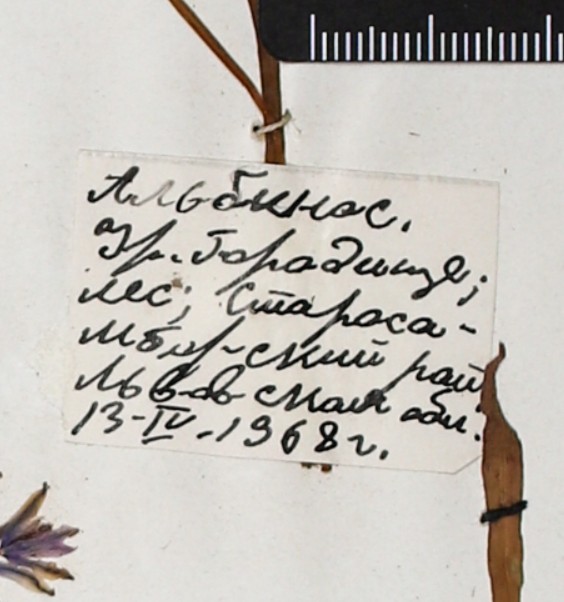 Альбинос.
Ур. Городище;
лес; Староса-
мборский рай
Львовская обл.
13-IV-1968 г.